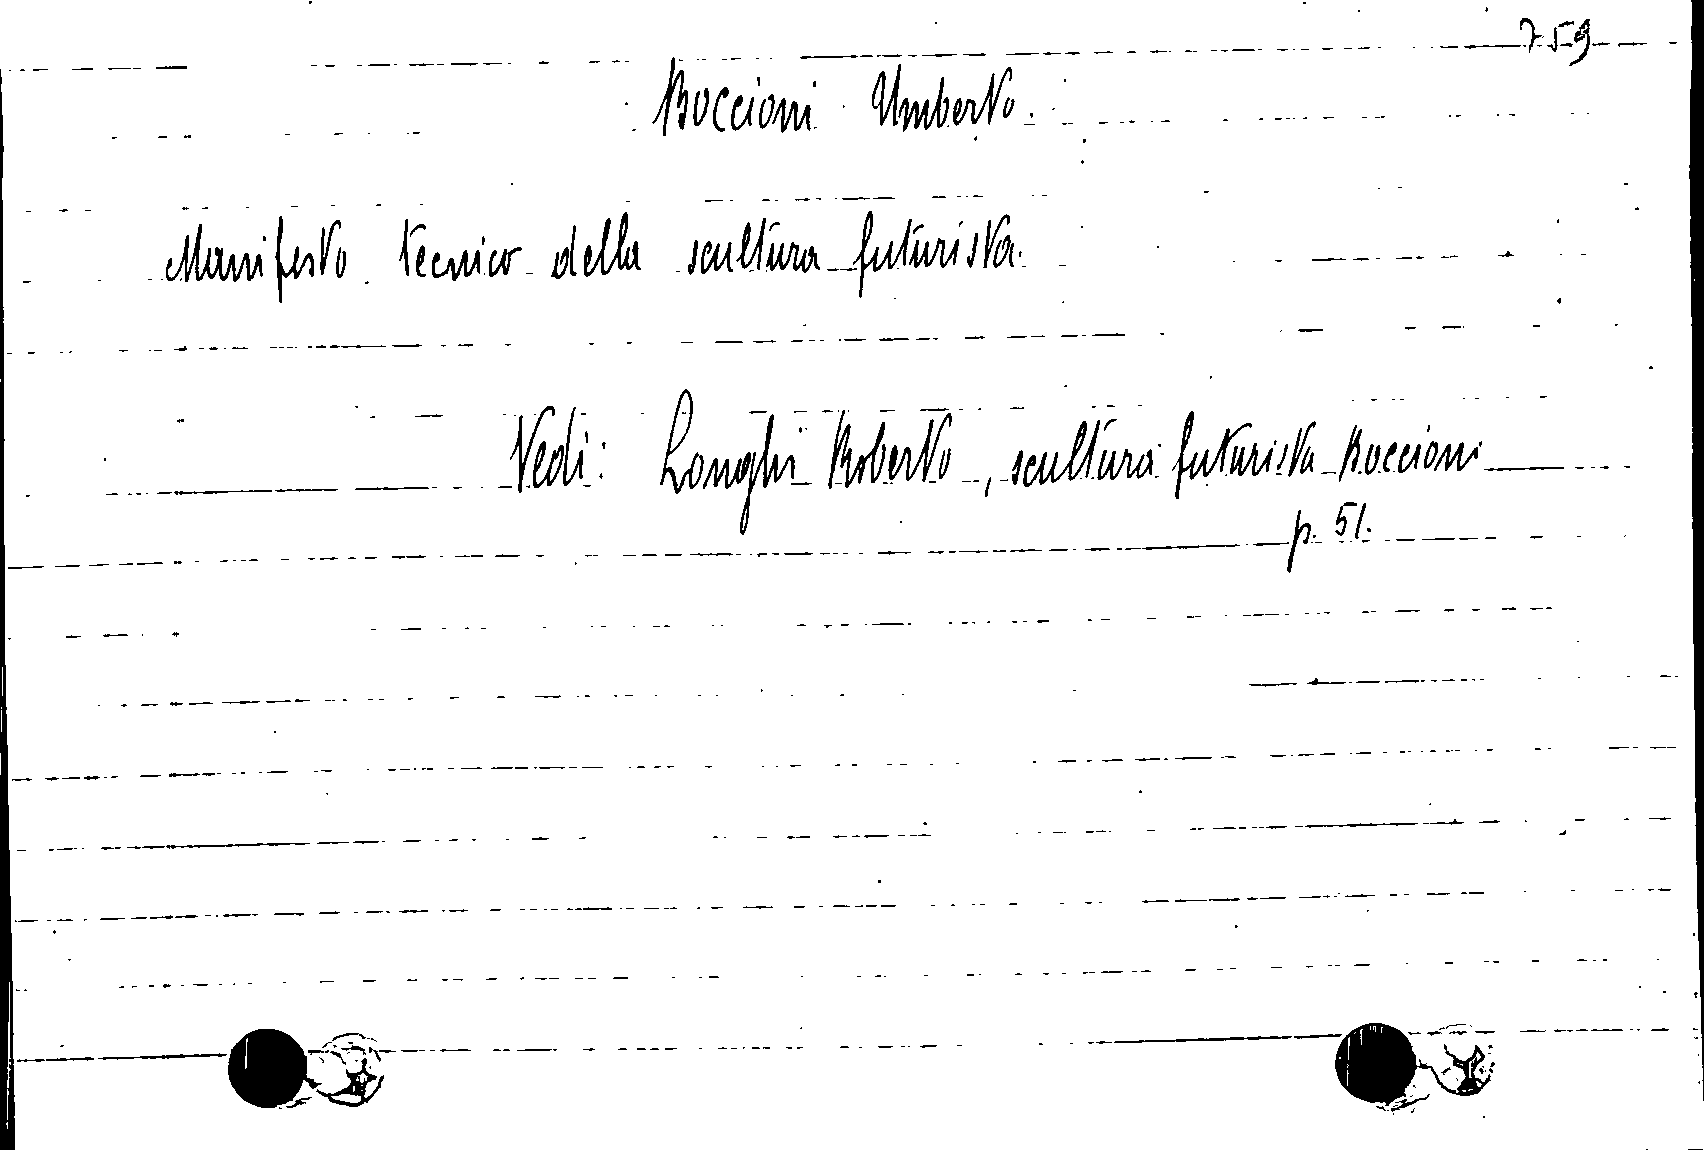 759
Boccioni Umberto.
Manifesto tecnico della scultura futurista.
Vedi: Longhi Roberto, scultura futurista Boccioni
p. 51.